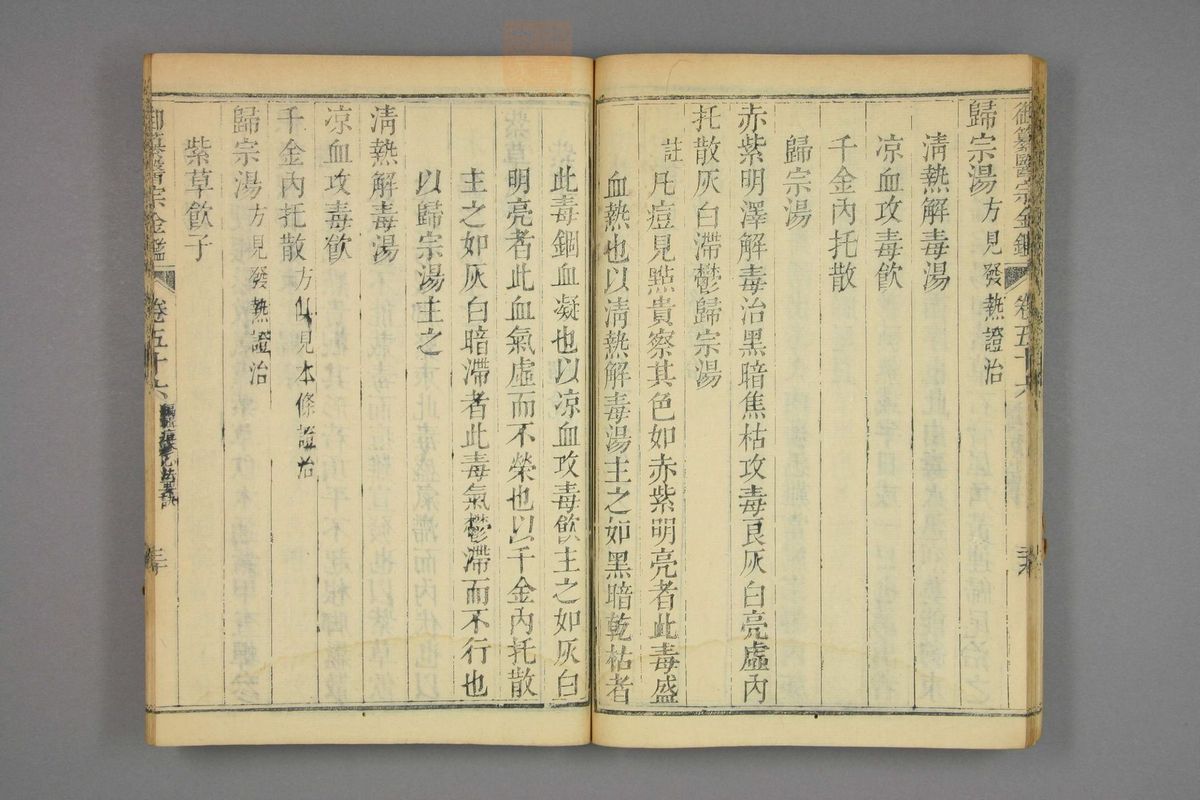 御纂醫宗金鑑 卷五十六
歸宗湯方見發熱證治
清熱解毒湯
凉血攻毒飲
千金內托散
歸宗湯
赤紫明澤解毒治黑暗焦枯攻毒良灰白亮虛內
托散灰白滯鬱歸宗湯
註凡痘見點貴察其色如赤紫明亮者此毒盛
血熱也以清熱解毒湯主之如黑暗乾枯者
此毒錮血凝也以凉血攻毒飲主之如灰白
明亮者此血氣虛而不榮也以千金內托散
主之如灰白暗滯者此毒氣鬱滯而不行也
以歸宗湯主之
清熱解毒湯
凉血攻毒飲
千金內托散方俱見本條證治
歸宗湯方見發熱證治
紫草飲子
御纂醫宗金鑑 卷五十六